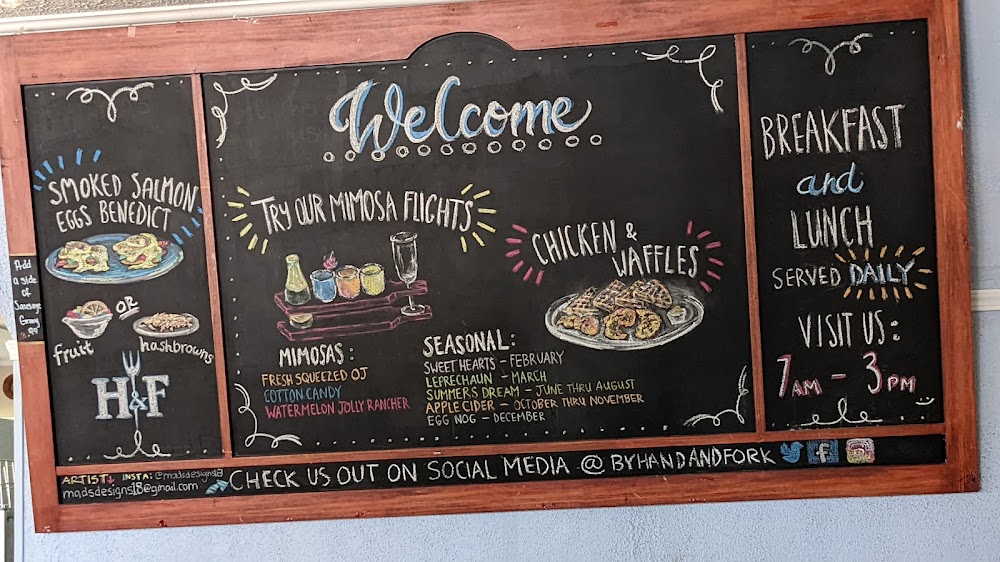 Welcome
SMOKED SALMON
EGGS BENEDICT
OR
fruit
hashbrowns
H&F
Add
a side
of
Sausage
Gravy
.99
TRY OUR MIMOSA FLIGHTS
MIMOSAS:
FRESH SQUEEZED OJ
COTTON CANDY
WATERMELON JOLLY RANCHER
CHICKEN &
WAFFLES
SEASONAL:
SWEET HEARTS - FEBRUARY
LEPRECHAUN - MARCH
SUMMERS DREAM - JUNE THRU AUGUST
APPLE CIDER - OCTOBER THRU NOVEMBER
EGG NOG - DECEMBER
BREAKFAST
and
LUNCH
SERVED DAILY
VISIT US:
7AM - 3PM
ARTIST INSTA: @madsdesigns18
madsdesigns18@gmail.com
CHECK US OUT ON SOCIAL MEDIA @ BYHANDANDFORK